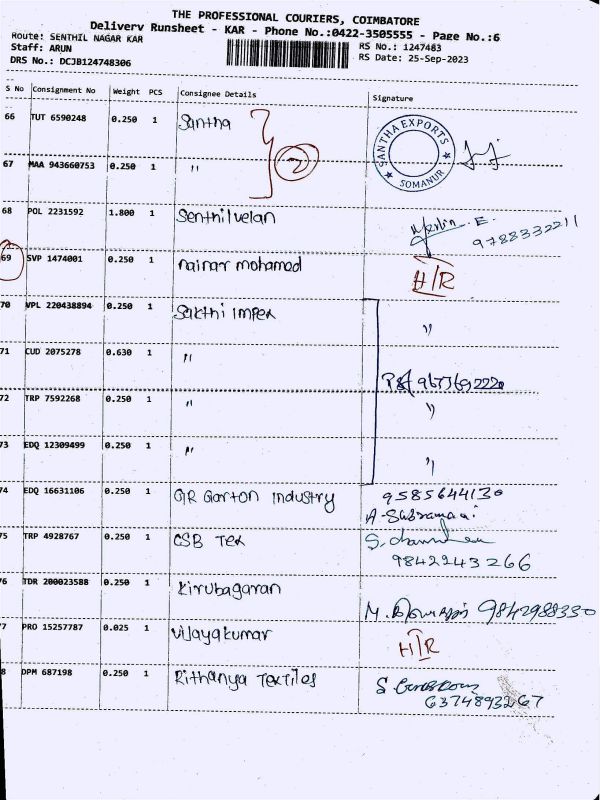 THE PROFESSIONAL COURIERS, COIMBATORE
Delivery Runsheet - KAR - Phone No.:0422-3505555 - Page No.:6
Route: SENTHIL NAGAR KAR
RS No.: 1247483
Staff: ARUN
RS Date: 25-Sep-2023
DRS No.: DCJB124748306
S No Consignment No Weight PCS Consignee Details Signature
66 TUT 6590248 0.250 1 Santha
2
SANTHA EXPORTS
SOMANUR
67 MAA 943660753 0.250 1 "
68 POL 2231592 1.800 1 Senthilvelan
9788332211
69 SVP 1474001 0.250 1 nainar mohamed H/R
70 VPL 220438894 0.250 1 Sakthi Impex "
71 CUD 2075278 0.630 1 "
72 TRP 7592268 0.250 1 " "
73 EDQ 12309499 0.250 1 " "
74 EDQ 16631106 0.250 1 GR Garton Industry 9585644130
75 TRP 4928767 0.250 1 CSB Tex
9842243266
76 TDR 200023588 0.250 1 Kirubagaran
9842988330
77 PRO 15257787 0.025 1 Vijayakumar
H/R
78 DPM 687198 0.250 1 Rithanya Textiles
6374893267